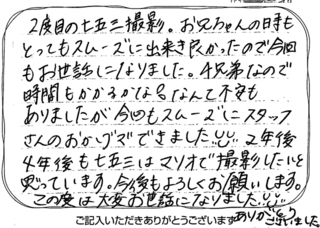 2度目の七五三撮影。お兄ちゃんの時も
とってもスムーズに出来き良かったので今回
もお世話になりました。4兄弟なので
時間もかかるかなぁなんて不安も
ありましたが今回もスムーズにスタッフ
さんのおかげでできました 2年後
4年後も七五三はマリオで撮影したいと
思っています。今後もよろしくお願いします。
この度は大変お世話になりました
ご記入いただきありがとうございます ありがとう
ございました